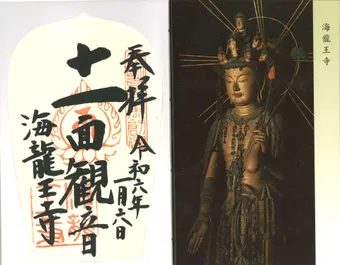 奉拝
令和六年
一月六日
十一面観音
海龍王寺
海龍王寺